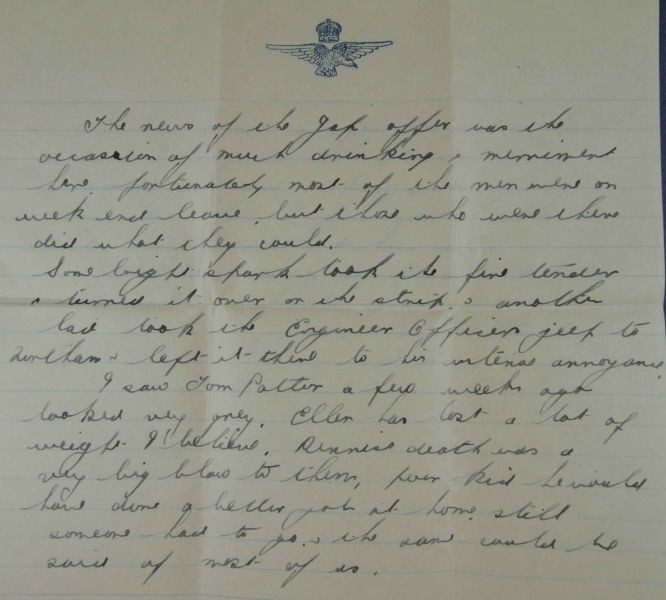 The news of the Jap offer was the
occassion of much drinking & merriment
here, fortunately most of the men were on
week end leave, but those who were there
did what they could.
Some bright spark took the fire tender
& turned it over on the strip, & another
lad took the Engineer Officers jeep to
Northam & left it there to his intense annoyance.
I saw Tom Patter a few weeks ago
looked very grey, Ellen has lost a lot of
weight I believe, Dennis death was a
very big blow to them, poor kid he would
have done a better job at home, still
someone had to go, & the same could be
said of most of us.